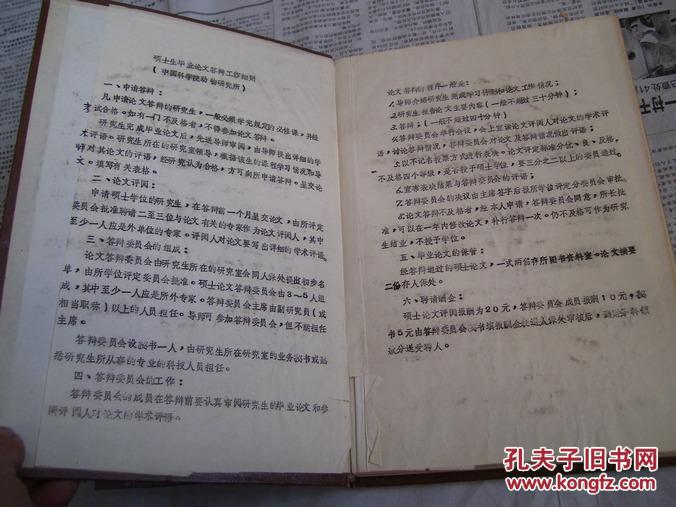 硕士生毕业论文答辩工作细则
(中国科学院动物研究所)
一、申请答辩:
凡申请论文答辩的研究生,一般必须学完规定的必修课,并经
考试合格。如有一门不及格者,不得参加论文答辩。
研究生完成毕业论文后,先送导师审阅,由导师提出详细的学
术评语。研究生所在的研究室领导,根据该生的课程学习情况和导
师对其论文的评语,经研究认为合格,方可向所申请答辩。呈交论
文,填写有关表格。
二、论文评阅:
申请硕士学位的研究生,在答辩前一个月呈交论文,由所评定
委员会批准聘请二至三位与论文有关的专家作为论文评阅人,其中
至少一人应是外单位的专家。评阅人对论文要写出详细的学术评语
三、答辩委员会的组成:
论文答辩委员会由研究生所在的研究室会同人保处提出初步名
单,由所学位评定委员会批准。硕士论文答辩委员会由3~5人组
成,其中至少一人应是所外专家。答辩委员会主席由副研究员(或
相当职称)以上的人员担任。导师可参加答辩委员会,但不能担任
主席。
答辩委员会设秘书一人,由研究生所在研究室的业务秘书或熟
悉研究生所从事的专业的科技人员担任。
四、答辩委员会的工作:
答辩委员会的成员在答辩前要认真审阅研究生的毕业论文和参
阅评阅人对论文的学术评语。
论文答辩的程序一般是:
1.导师介绍研究生完成学习计划和论文工作情况;
2.研究生报告论文主要内容(一般不超过三十分钟);
3.答辩;(一般不超过四十分钟)
4.答辩委员会举行会议,会上宣读论文评阅人对论文的学术评
语,讨论答辩情况,并对论文及答辩情况做出评语;
5.以不记名投票方式进行表决。论文评定标准分优、良、及格、
不及格四个等级,是否授予硕士学位,要三分之二以上的委员通过。
6.宣布表决结果与答辩委员会的评语;
7.答辩委员会的决议由主席签字后报所学位评定分委员会审批。
8.论文答辩不及格者,经本人申请,答辩委员会同意,所长批
准,可以在一年内修改论文,补行答辩一次。仍不及格可作为研究
生结业,不授予学位。
五、毕业论文的保管:
经答辩通过的硕士论文,一式两份存所图书资料室。论文摘要
二份存人保处。
六、聘请酬金:
硕士论文评阅报酬为20元,答辩委员会成员报酬10元,秘
书5元由答辩委员会秘书填报酬金
孔夫子旧书网
www.kongfz.com